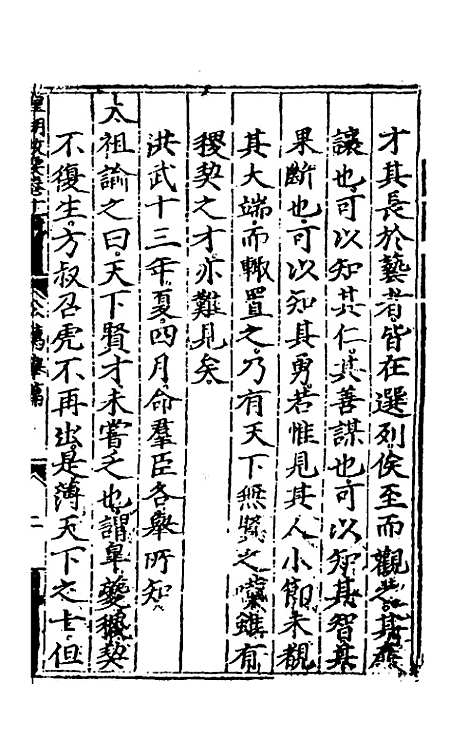 才其長於藝者皆在選列俟至而觀之其廉
讓也可以知其仁其善謀也可以知其智其
果斷也可以知其勇若惟見其人小節未覩
其大端而輙置之乃有天下無賢之嘆雖有
稷契之才亦難見矣
洪武十三年夏四月命羣臣各舉所知
太祖諭之曰天下賢才未嘗乏也謂皐夔稷契
不復生方叔召虎不再出是薄天下之士但
皇明政要卷十
公薦舉第
二